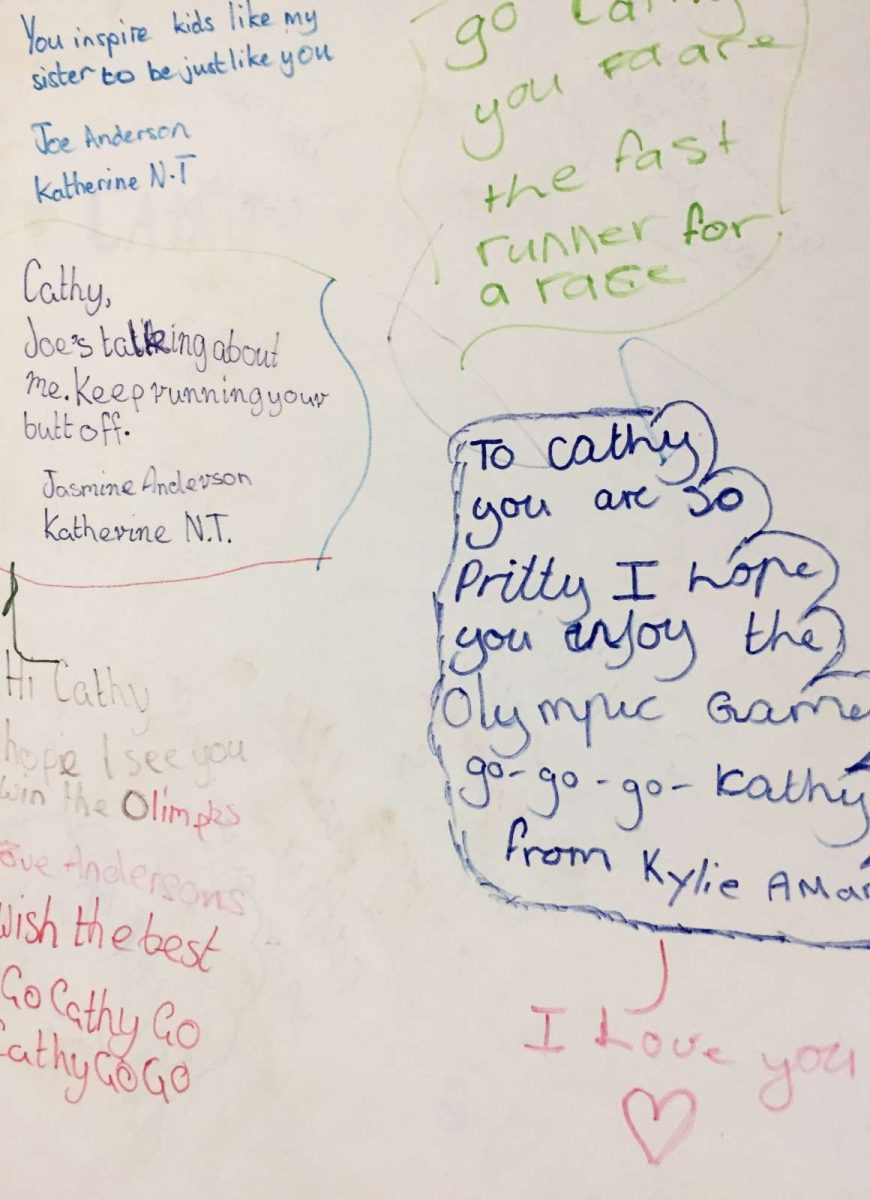 You inspire kids like my
sister to be just like you
Joe Anderson
Katherine N.T
Cathy,
Joe's talking about
me. Keep running your
butt off.
Jasmine Anderson
Katherine N.T.
Hi Cathy
hope I see you
win the Olimpks
Andersons
Wish the best
Go Cathy Go
Cathy GoGo
go
you are
the fast
runner for
a race
To cathy
you are so
Pritty I hope
you enjoy the
Olympic Game
go-go-go-Kathy
from Kylie
I Love you